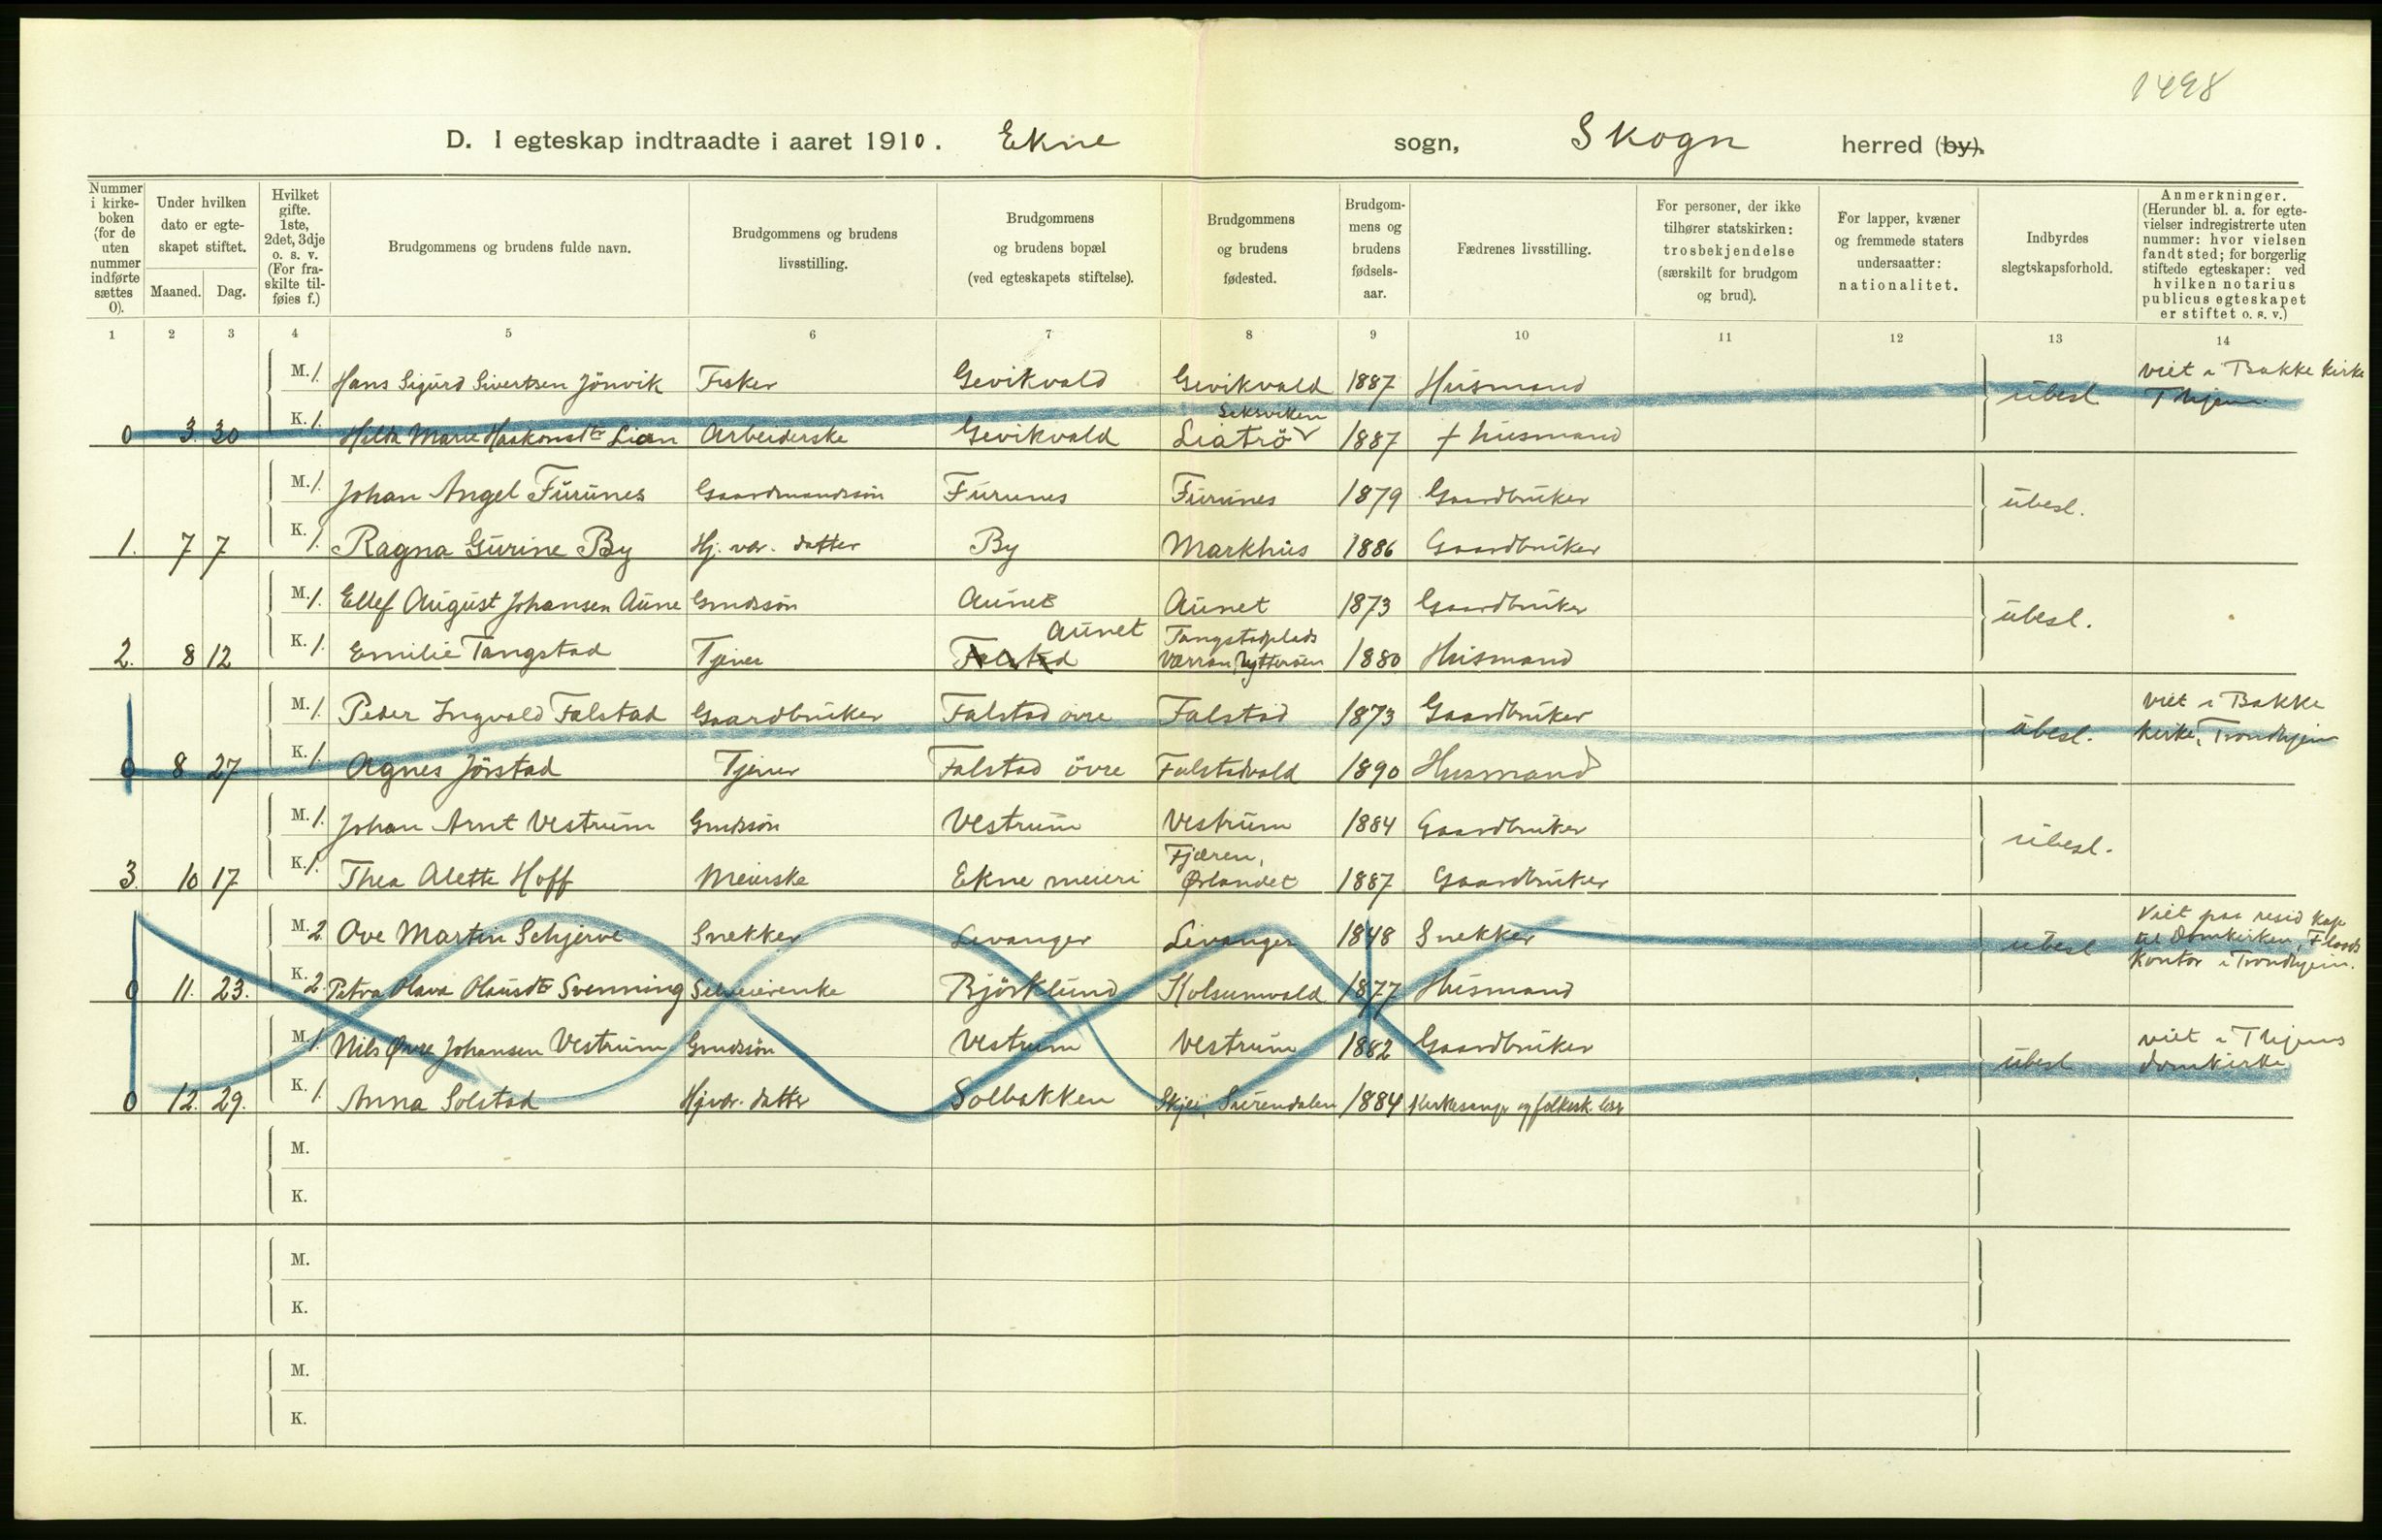 1498
D. I egteskap indtraadte i aaret 1910. Ekne sogn, Skogn herred (by).
Nummer i kirkeboken (for de uten nummer indførte sættes 0).
Under hvilken dato er egteskapet stiftet.
Maaned. Dag.
Hvilket gifte. 1ste, 2det, 3dje o. s. v. (For fraskilte tilføies f.)
Brudgommens og brudens fulde navn.
Brudgommens og brudens livsstilling.
Brudgommens og brudens bopæl (ved egteskapets stiftelse).
Brudgommens og brudens fødested.
Brudgommens og brudens fødselsaar.
Fædrenes livsstilling.
For personer, der ikke tilhører statskirken: trosbekjendelse (særskilt for brudgom og brud).
For lapper, kvæner og fremmede staters undersaatter: nationalitet.
Indbyrdes slegtskapsforhold.
Anmerkninger. (Herunder bl. a. for egtevielser indregistrerte uten nummer: hvor vielsen fandt sted; for borgerlig stiftede egteskaper: ved hvilken notarius publicus egteskapet er stiftet o. s. v.)
1 2 3 4 5 6 7 8 9 10 11 12 13 14
M. 1. Hans Sigurd Sivertsen Jönvik Fisker Gevikvald Gevikvald 1887 Husmand ubesl viet i Bakke kirke
Thjem
0 3. 30 K. 1. Hilda Marie Haakonsdtr Lian Arbeiderske Gevikvald Leksviken Liatrö 1887 † husmand
M. 1. Johan Angel Furunes Gaardmandssön Furunes Furunes 1879 Gaardbruker ubesl.
1. 7 7 K. 1. Ragna Gurine By Hj. vær. datter By Markhus 1886 Gaardbruker
M. 1. Ellef August Johansen Aune Gmdssön Aunet Aunet 1873 Gaardbruker ubesl.
2. 8 12 K. 1. Emilie Tangstad Tjener Falstad Aunet Tangstadplads Værran, Ytterøen 1880 Husmand
M. 1. Peder Ingvald Falstad Gaardbruker Falstad øvre Falstad 1873 Gaardbruker ubesl. viet i Bakke
kirke, Trondhjem
0 8 27 K. 1. Agnes Jörstad Tjener Falstad övre Falstadvald 1890 Husmand
M. 1. Johan Arnt Vestrum Gmdssön Vestrum Vestrum 1884 Gaardbruker ubesl.
3. 10 17 K. 1. Thea Alette Hoff Meierske Ekne meieri Fjæren, Ørlandet 1887 Gaardbruker
M. 2 Ove Martin Schjerve Snekker Levanger Levanger 1848 Snekker ubesl Viet paa resid. Kap.
til Domkirken, Floods
Kontor i Trondhjem.
0 11. 23. K. 2. Petra Olava Olausdtr Svenning Selveierenke Björklund Kolsumvald 1877 Husmand
M. 1. Nils Øvre Johansen Vestrum Gmdssön Vestrum Vestrum 1882 Gaardbruker ubesl viet i Thjems
domkirke
0 12. 29. K. 1. Anna Solstad Hj.vær. datter Solbakken Skjei, Surendalen 1884 Kirkesanger og folkesk. lær.
M.
K.
M.
K.
M.
K.